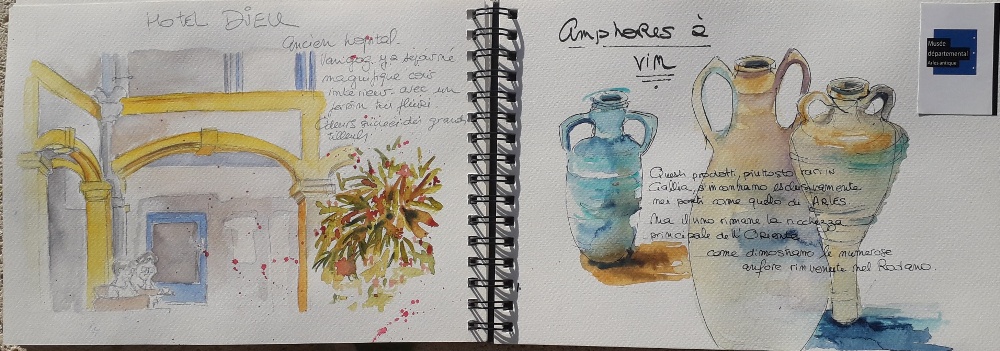 HOTEL DIEU
Ancien hopital.
Van gog y a séjourné
magnifique cour
intérieur avec un
jardin très fleuri.
Odeurs sucrée des grands
tilleuls
Amphores à
vin
Questi prodotti, piuttosto rari in
Gallia, si montrano esclusivamente
nei porti come quello di ARLES.
Ma il vino rimane la ricchezza
principale dell'ORIENTE
come dimostrano le numerose
anfore rinvenute nel Rodano.
Musée
départemental
Arles antique